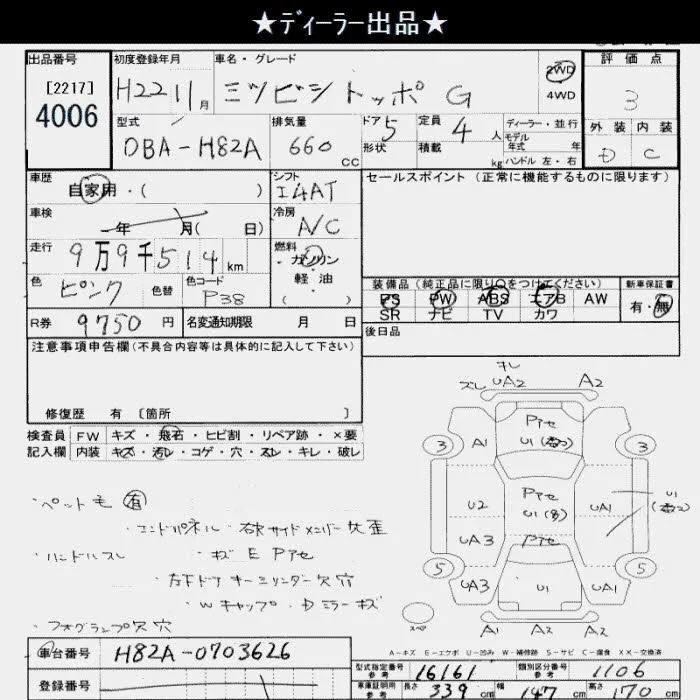 ★ディーラー出品★
出品番号
[2217]
4006
初度登録年月
H22 11月
車名・グレード
ミツビシ トッポ G
2WD
4WD
評価点
3
外装 内装
D C
型式
DBA-H82A
排気量
660 cc
ドア 5
形状
定員 4 人
積載 kg
ディーラー・並行
モデル
年式 年
ハンドル 左・右
車歴
自家用・( )
シフト
I4AT
セールスポイント (正常に機能するものに限ります)
車検
年 月( 日)
冷房
A/C
走行
9万9千514 km
燃料
ガソリン
軽油
( )
色
ピンク
色替
色コード
P38
装備品 (純正品に限り○をつけてください)
PS PW ABS エアB AW
SR ナビ TV カワ
新車保証書
有・無
R券 9750 円
名変通知期限 月 日
後日品
注意事項申告欄(不具合内容等は具体的に記入して下さい)
修復歴 有 〔箇所 〕
検査員 FW キズ・飛石・ヒビ割・リペア跡・×要
記入欄 内装 キズ・汚レ・コゲ・穴・スレ・キレ・破レ
キレ
ズレ UA2 A2
Pアセ
3 A1 3
Pアセ
U2 UA1 U1
UA3 Pアセ
5 5
UA3 U1 UA1
スペア A1 A2 A2
・ペット毛 有
・エンドパネル・右リサイドメンバー 歪
・ハンドルスレ ・キズ E Pアセ
・左右ドア キーシリンダー欠 穴
・Wキャップ・Dミラーキズ
・フォグランプ欠 穴
A-キズ E-エクボ U-凹み W-補修跡 S-サビ C-腐食 XX-交換済
車台番号 H82A-0703626
登録番号
型式指定番号
参考
16161
類別区分番号
参考
1106
車庫証明用
参考
長さ 339 cm 幅 147 cm 高さ 170 cm